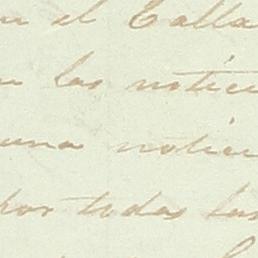 en el Calla
las notici
una notici
por todas las